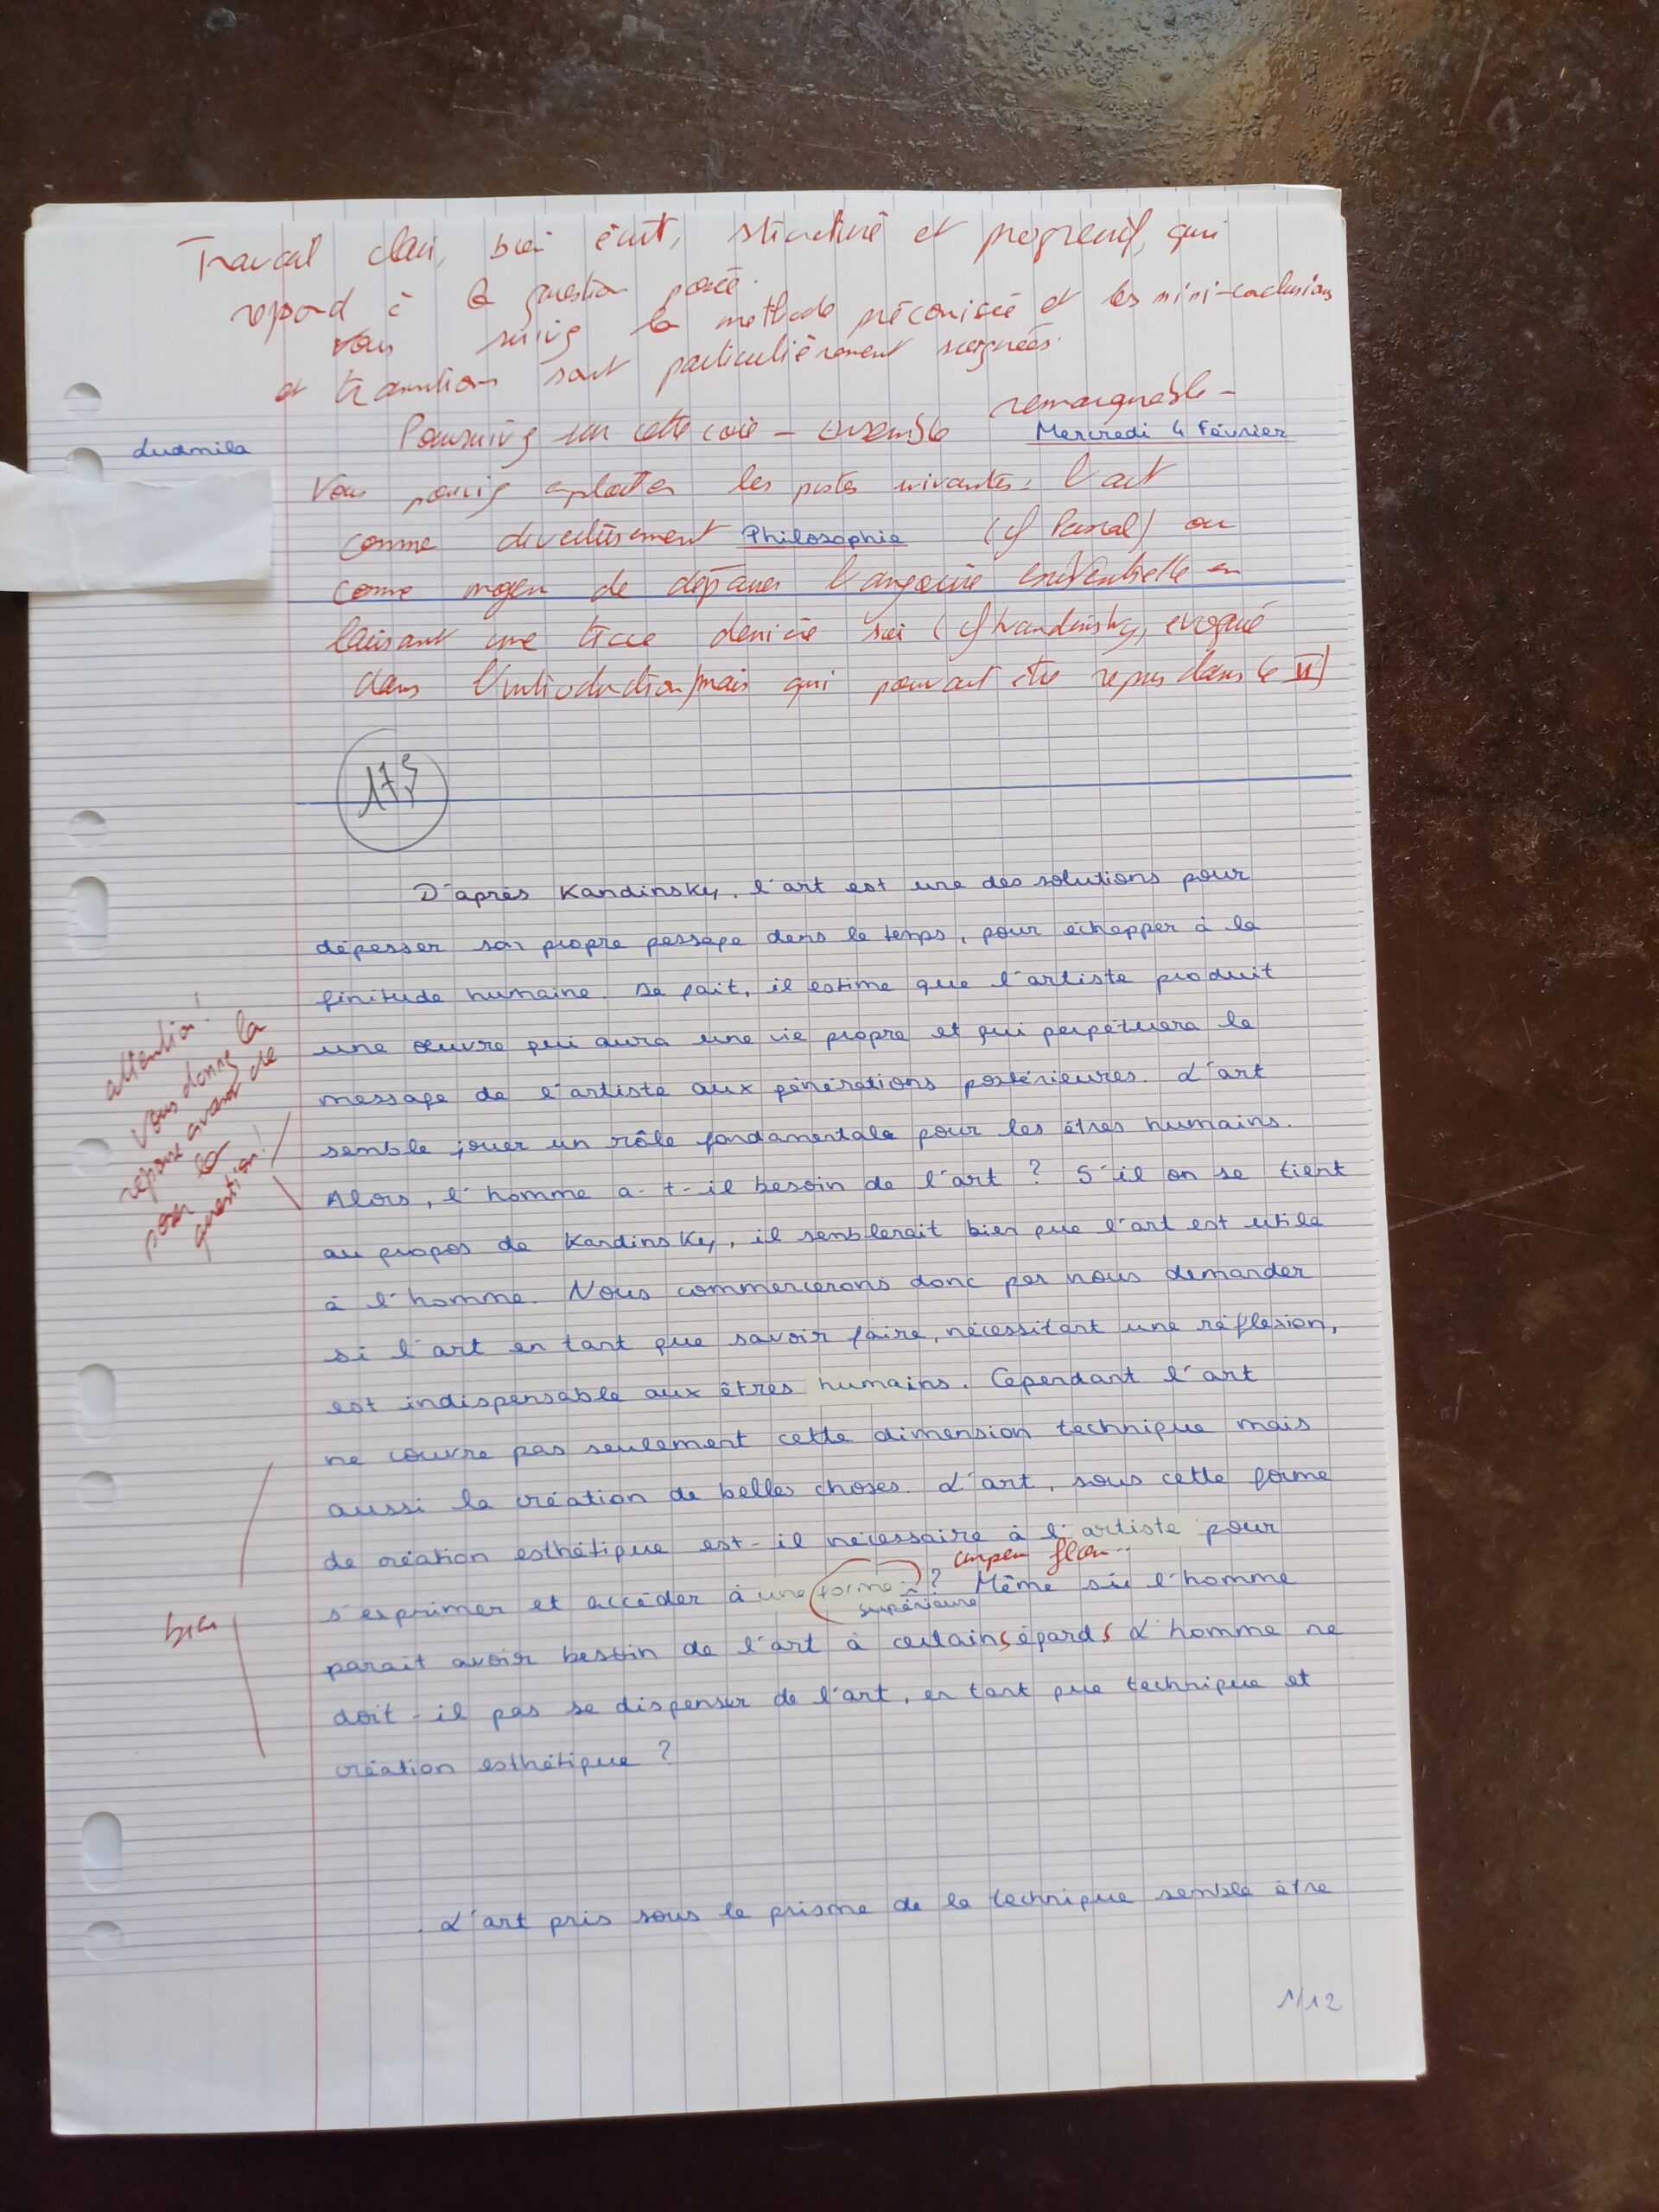 Travail clair, bien écrit, structuré et progressif, qui
répond à la question posée.
Vous suivez la méthode préconisée et les mini-conclusions
et transitions sont particulièrement soignées.
Poursuivez sur cette voie - Ensemble remarquable -
Ludmila
Mercredi 4 Février
Vous pouviez exploiter les pistes suivantes : l'art
comme divertissement (cf Pascal) ou
Philosophie
comme moyen de dépasser l'angoisse existentielle en
laissant une trace derrière soi (cf Kandinsky, évoqué
dans l'introduction mais qui pouvait être repris dans le II)
17,5
D'après Kandinsky, l'art est une des solutions pour
dépasser son propre passage dans le temps, pour échapper à la
finitude humaine. De fait, il estime que l'artiste produit
une œuvre qui aura une vie propre et qui perpétuera le
message de l'artiste aux générations postérieures. L'art
semble jouer un rôle fondamentale pour les êtres humains.
Alors, l'homme a-t-il besoin de l'art ? S'il on se tient
au propos de Kandinsky, il semblerait bien que l'art est utile
à l'homme. Nous commencerons donc par nous demander
si l'art en tant que savoir faire, nécessitant une réflexion,
est indispensable aux êtres humains. Cependant l'art
ne couvre pas seulement cette dimension technique mais
aussi la création de belles choses. L'art, sous cette forme
de création esthétique est-il nécessaire à l'artiste pour
s'exprimer et accéder à une forme supérieure ? Même si l'homme
un peu flou...
parait avoir besoin de l'art à certains égards L'homme ne
doit-il pas se dispenser de l'art, en tant que technique et
création esthétique ?
attention !
Vous donnez la
réponse avant de
poser la
question !
bien
L'art pris sous le prisme de la technique semble être
1/12